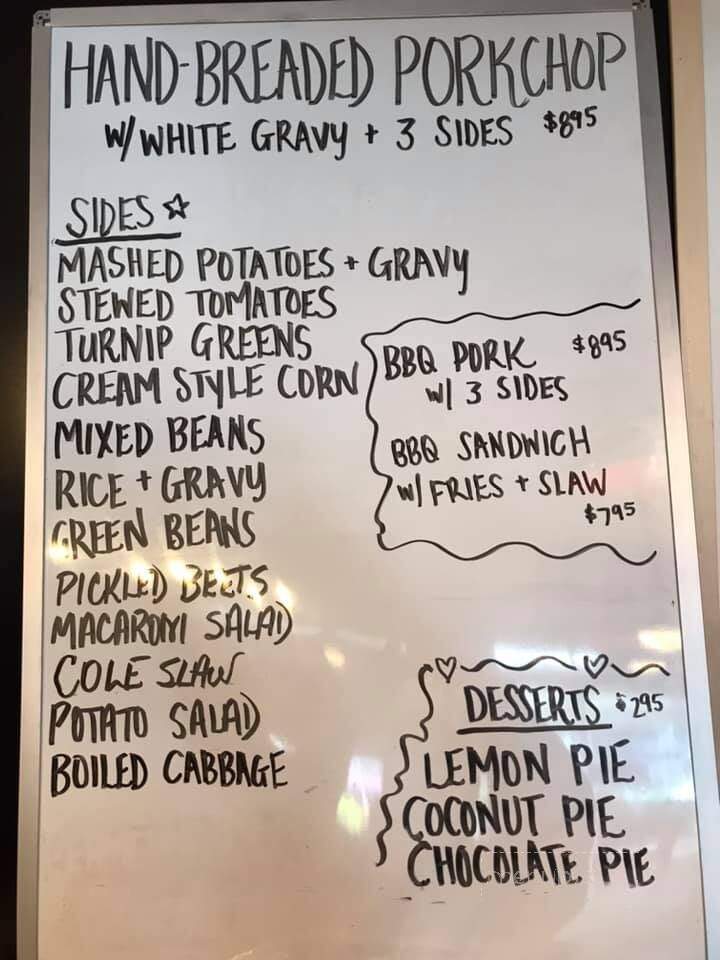 HAND-BREADED PORKCHOP
W/ WHITE GRAVY + 3 SIDES $895
SIDES
MASHED POTATOES + GRAVY
STEWED TOMATOES
TURNIP GREENS
CREAM STYLE CORN
MIXED BEANS
RICE + GRAVY
GREEN BEANS
PICKLED BEETS
MACARONI SALAD
COLE SLAW
POTATO SALAD
BOILED CABBAGE
BBQ PORK $895
W/ 3 SIDES
BBQ SANDWICH
W/ FRIES + SLAW
$795
DESSERTS $295
LEMON PIE
COCONUT PIE
CHOCOLATE PIE